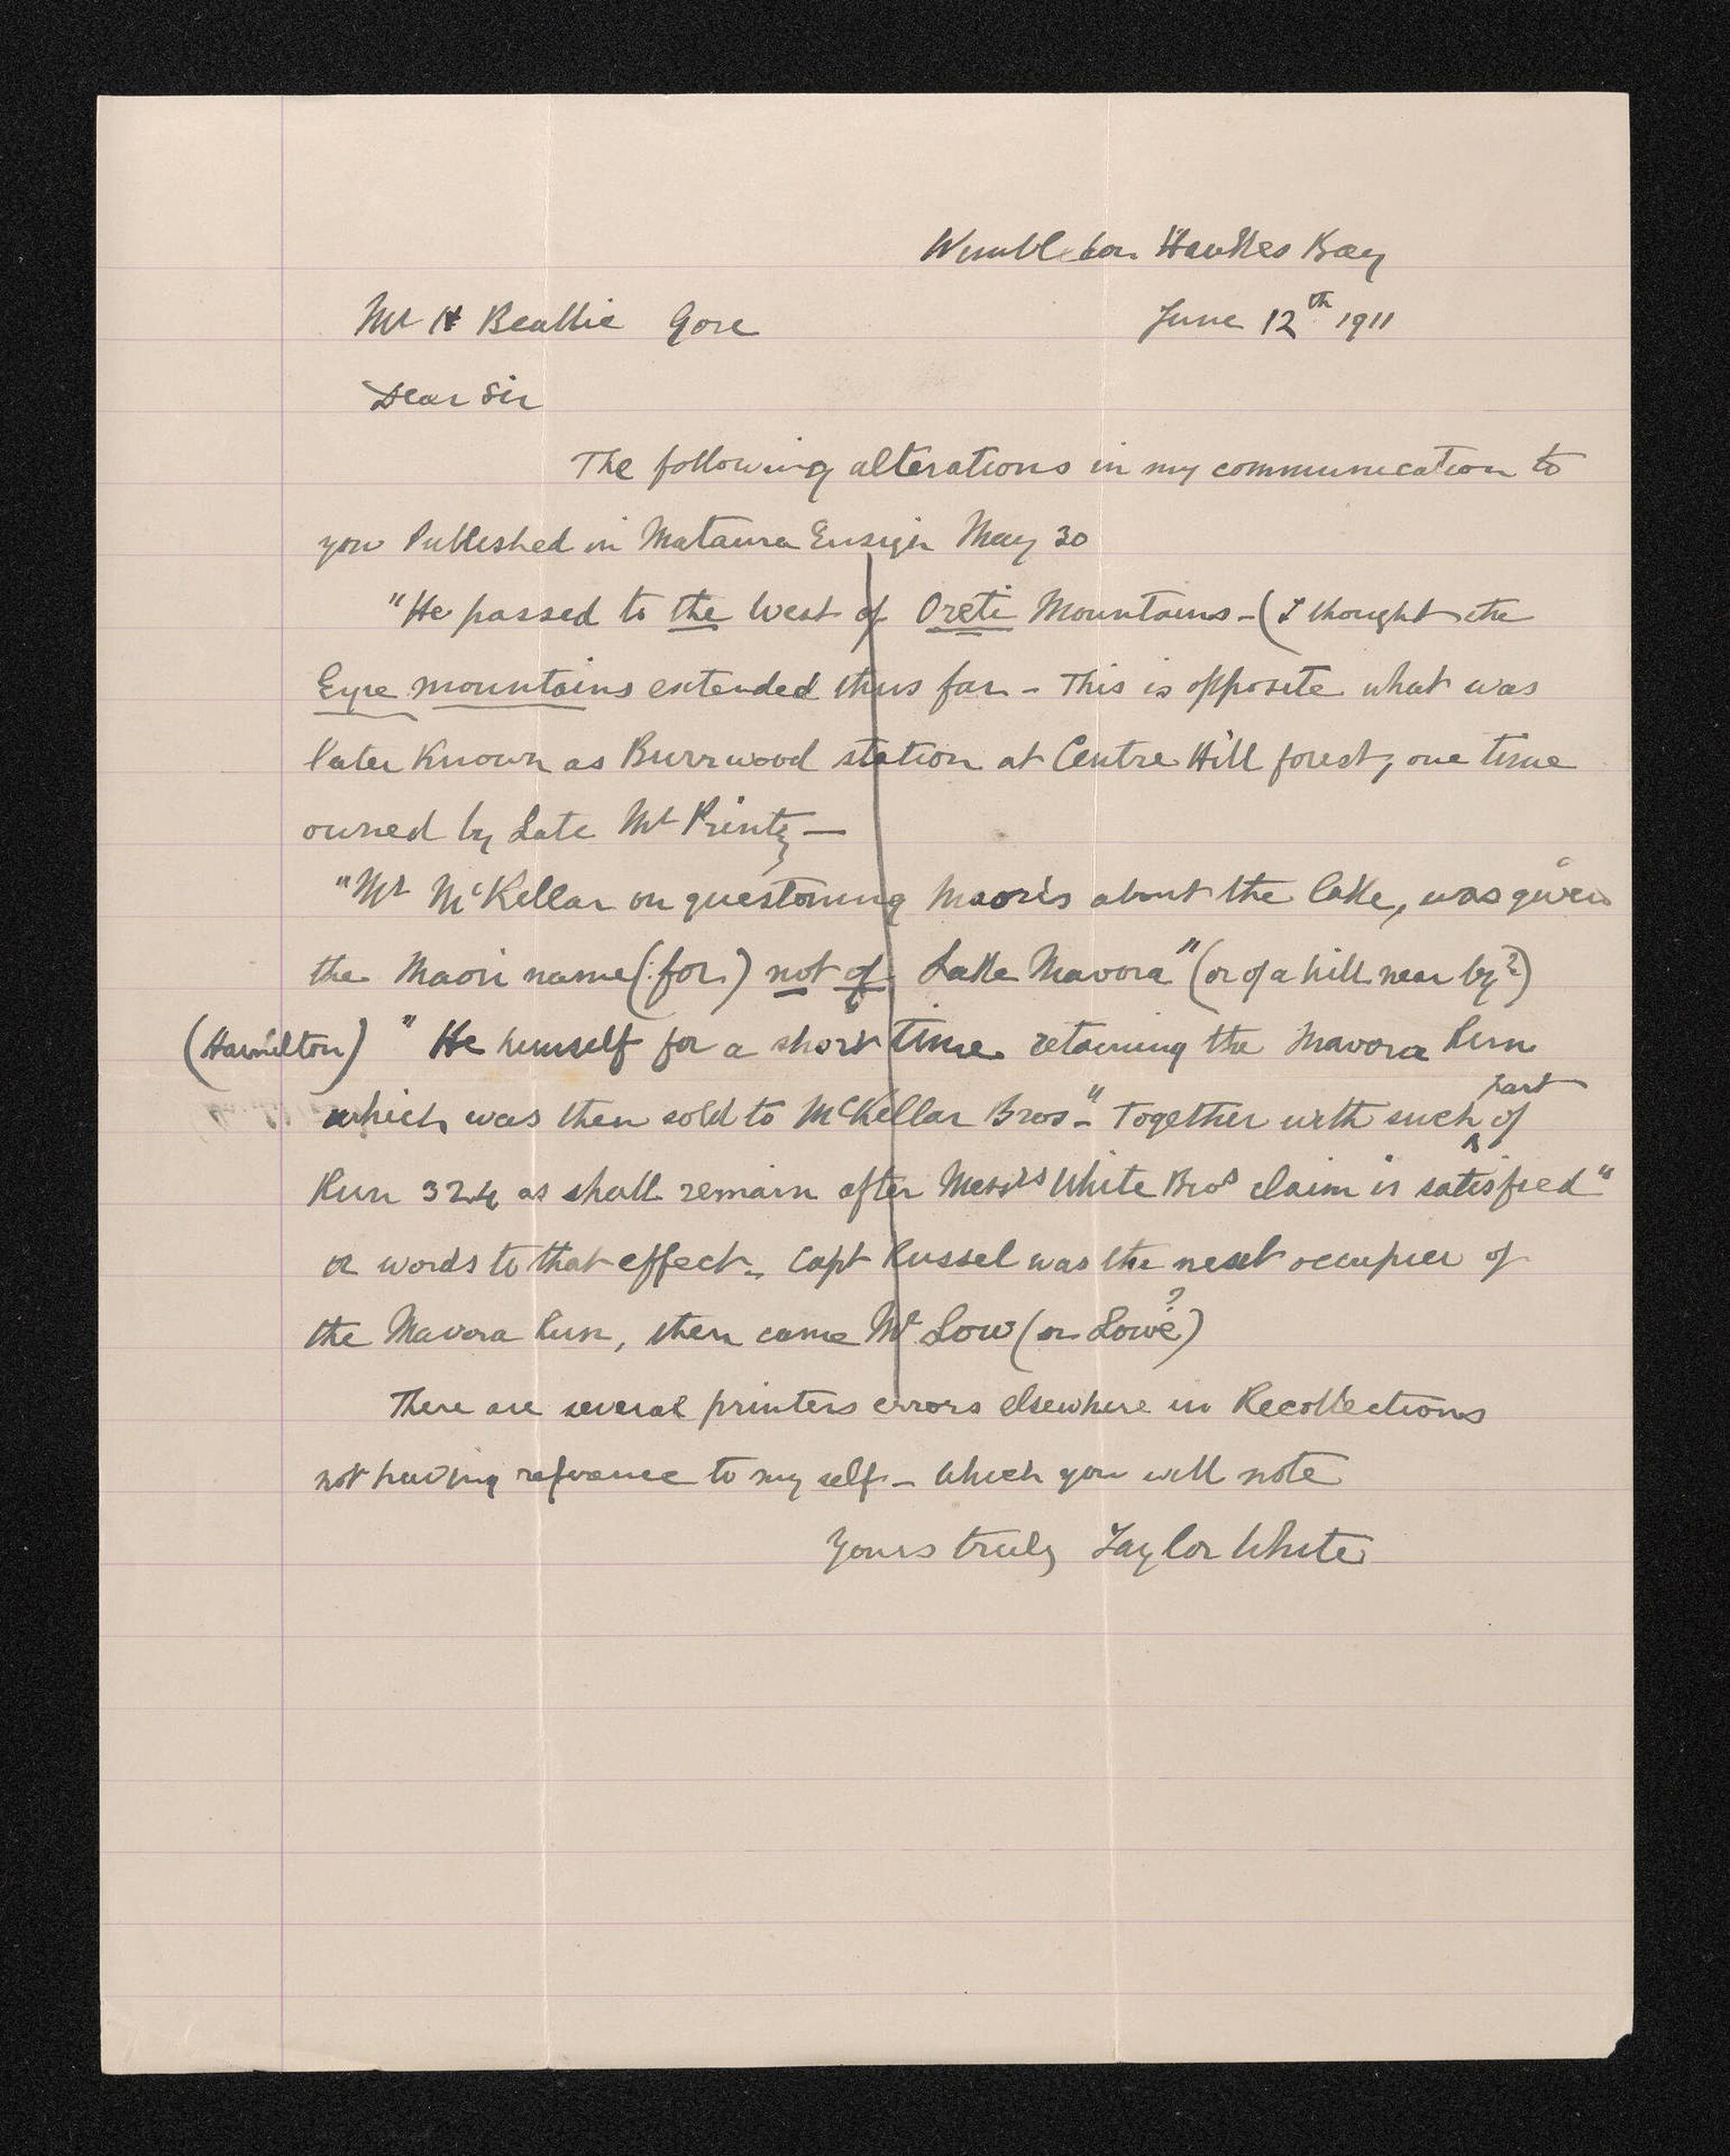 Wimbledon Hawkes Bay
Mr H Beattie Gore June 12th 1911
Dear Sir
The following alterations in my communication to
you Published in Mataura Ensign May 30
"He passed to the West of Oreti Mountains - (I thought the
Eyre mountains extended thus far - This is opposite what was
later known as Burrwood station at Centre Hill forest, one time
owned by Late Mr Printz —
"Mr McKellar on questoning Maoris about the lake, was given
the Maori name (for) not of Lake Mavora" (or of a hill near by?)
(Hamilton) "He himself for a short time retaining the Mavora Run
which was then sold to McKellar Bros - " Together with such part of
Run 324 as shall remain after Messrs White Bros claim is satisfied"
or words to that effect. Capt Russel was the next occupier of
the Mavora Run, then came Mr Low (or Lowe?)
There are several printers errors elsewhere in Recollections
not having referance to my self - Which you will note
Yours truly Taylor White